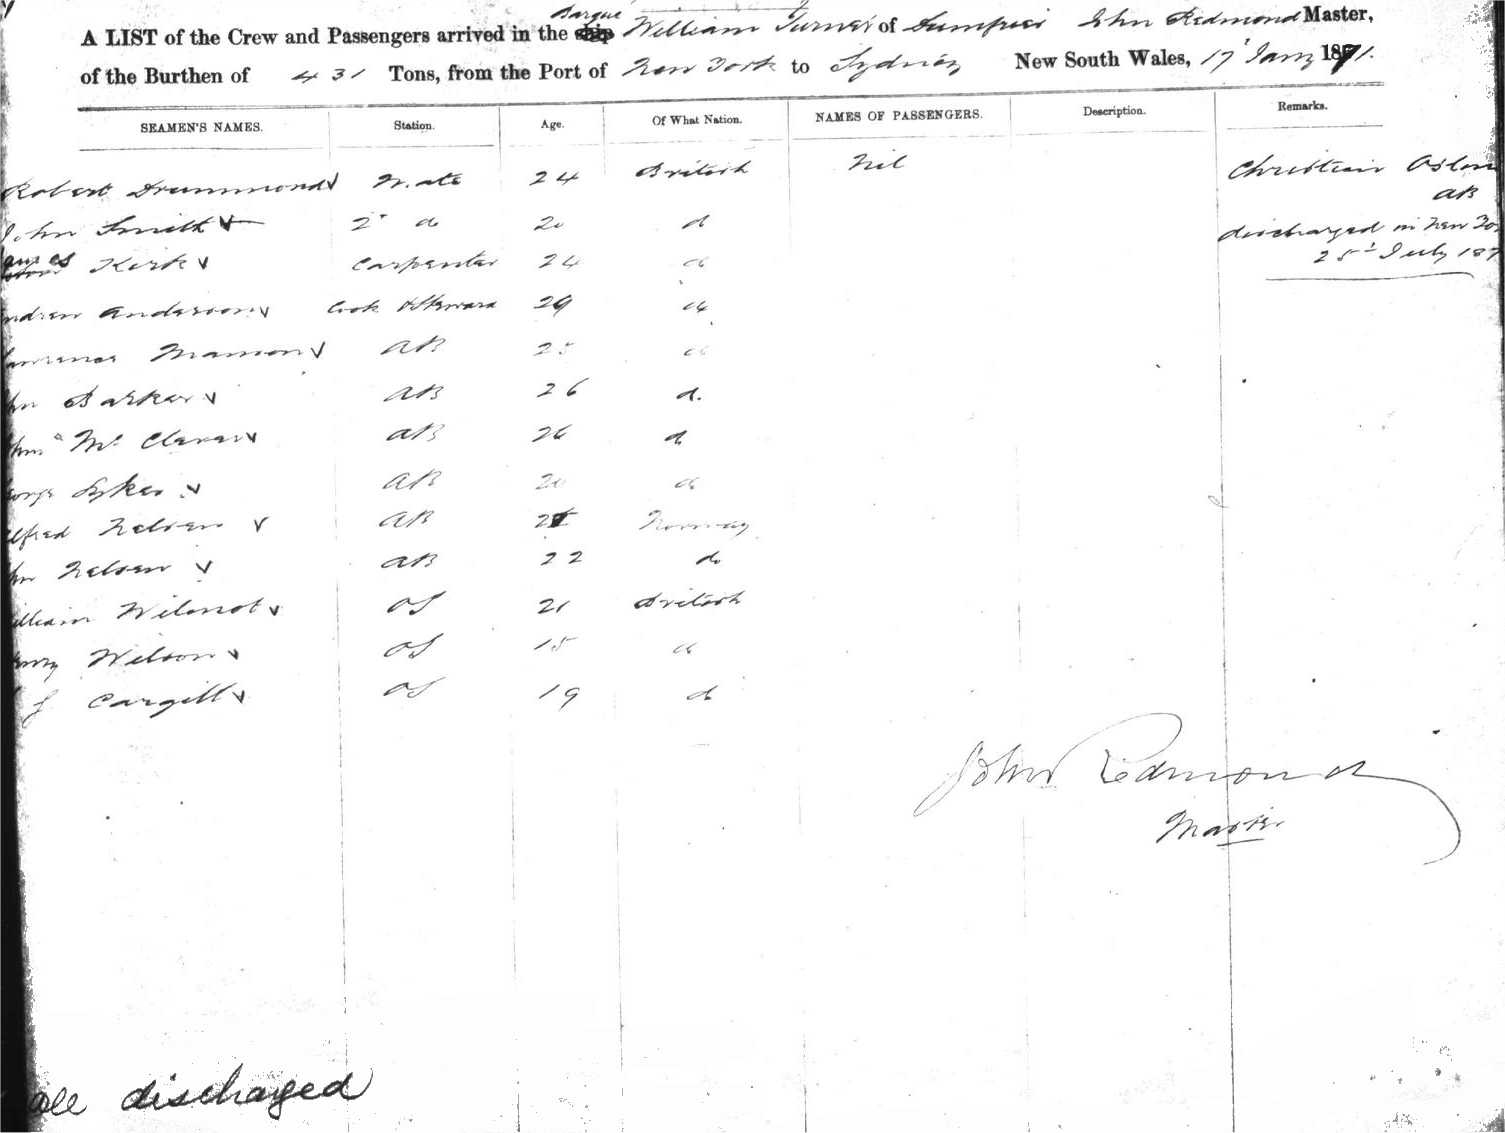 A LIST of the Crew and Passengers arrived in the Barque William Turner of Dumfries John Redmond Master,
of the Burthen of 431 Tons, from the Port of New York to Sydney New South Wales, 17 Jany 1871.
SEAMEN'S NAMES. Station. Age. Of What Nation. NAMES OF PASSENGERS. Description. Remarks.
Robert Drummond Mate 24 British Nil Christian
AB
John Smith 2d do 20 do discharged in New
James Kirk Carpenter 24 do 25 July 187
Andrew Anderson Cook & Steward 29 do
Lawrence AB 25 do
John Barker AB 26 do.
Mc AB 26 do
George Sykes AB 20 do
Alfred Nelsen AB Norway
John Nelsen AB 22 do
William Wilmot OS 21 British
Henry Wilson OS 15 do
J Cargill OS 19 do
John Redmond
Master
all discharged